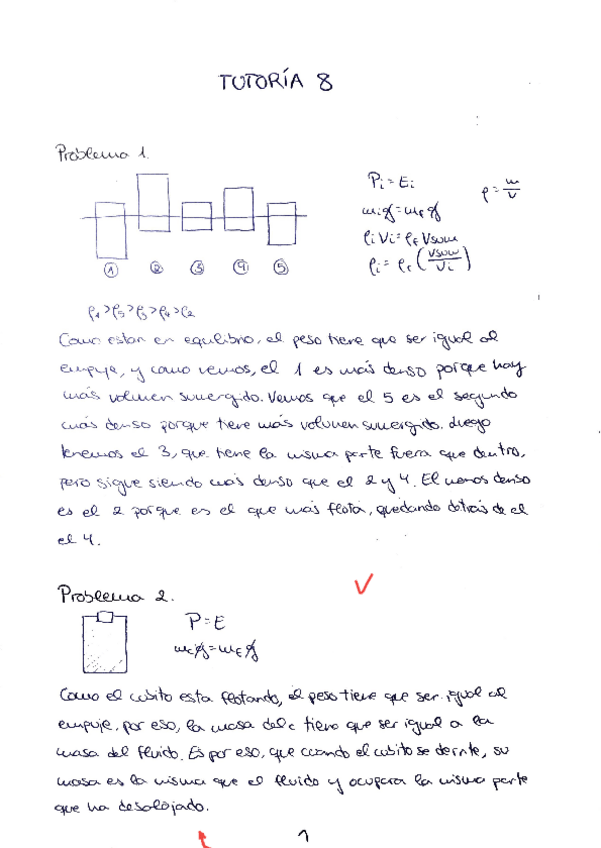 TUTORÍA 8
Problema 1.
Pi = Ei
mi g = mF g
ρi Vi = ρF Vsum
ρi = ρF (Vsum/Vi)
ρ = m/v
1 2 3 4 5
ρ1 > ρ5 > ρ3 > ρ4 > ρ2
Como estan en equilibrio, el peso tiene que ser igual al
empuje, y como vemos, el 1 es más denso porque hay
más volumen sumergido. Vemos que el 5 es el segundo
más denso porque tiene más volumen sumergido. Luego
tenemos el 3, que tiene la misma parte fuera que dentro,
pero sigue siendo más denso que el 2 y 4. El menos denso
es el 2 porque es el que más flota, quedando detrás de el
el 4.
Problema 2.
P = E
mc g = mF g
Como el cubito esta flotando, el peso tiene que ser igual al
empuje, por eso, la masa del c tiene que ser igual a la
masa del fluido. Es por eso, que cuando el cubito se derrite, su
masa es la misma que el fluido y ocupara la misma parte
que ha desalojado.
1